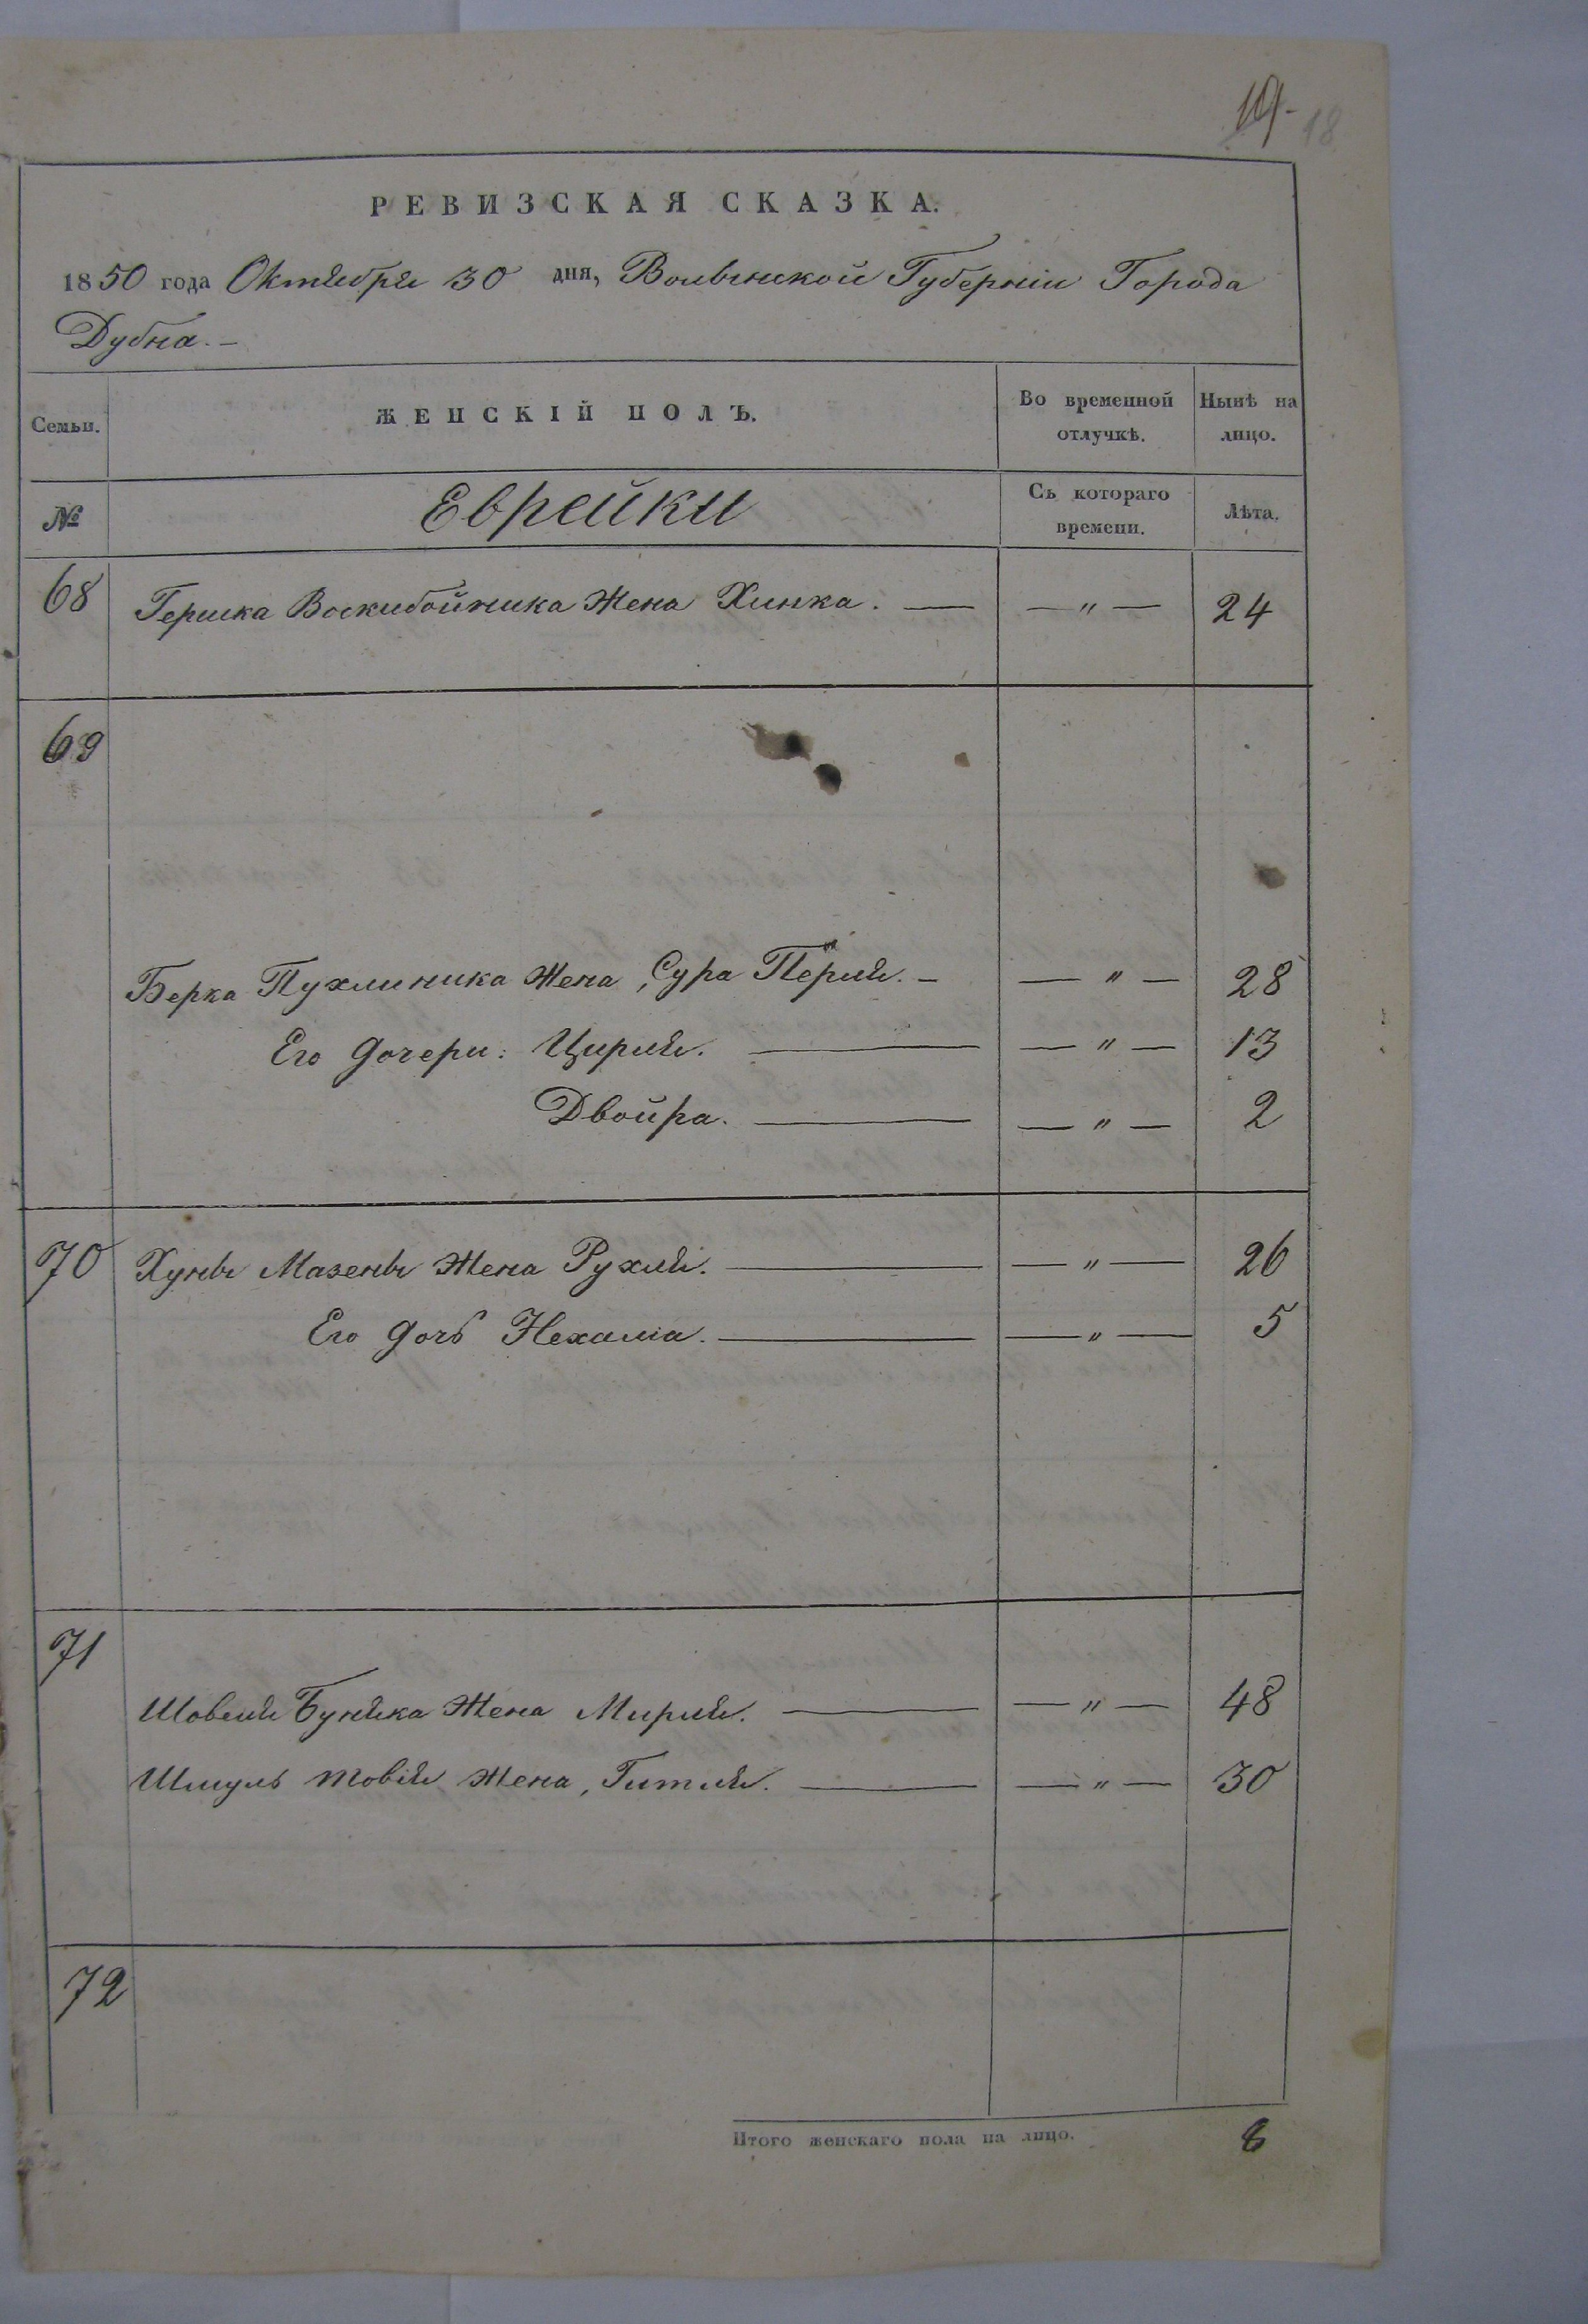 19.- 18
РЕВИЗСКАЯ СКАЗКА.
1850 года Октября 30 дня, Волынской Губерніи Города
Дубна.-
Семьи. ЖЕНСКІЙ ПОЛЪ. Во временной отлучкѣ. Нынѣ на лицо.
№ Еврейки Съ котораго времени. Лѣта.
68 Гершка Воскибойника Жена Хинка. — — " — 24
69
Берка Пухлиника Жена, Сура Перля. - — " — 28
Его Дочери: Цирля. — — " — 13
Двойра. — — " — 2
70 Хуны Мазены Жена Рухля. — — " — 26
Его Дочь Нехама. — — " — 5
71
Шовеля Буняка Жена Мирля. — — " — 48
Шмуль Товія Жена, Гитля. — — " — 30
72
Итого женскаго пола на лицо. 8